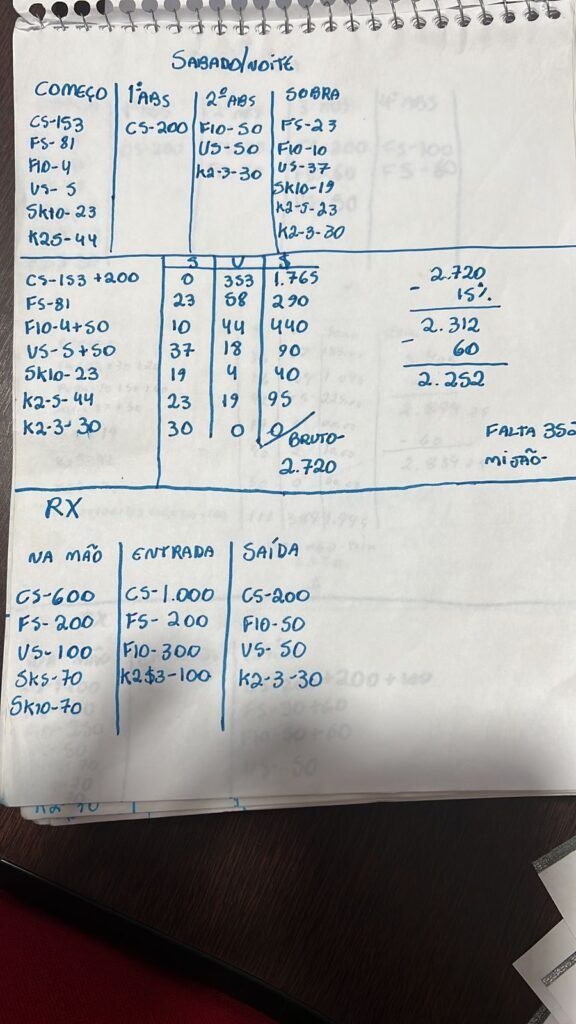 SABADO/NOITE
COMEÇO 1ª ABS 2º ABS SOBRA
CS-153 CS-200 F10-50 FS-23
FS-81 US-50 F10-10
F10-4 K2-3-30 US-37
US-5 SK10-19
SK10-23 K2-5-23
K25-44 K2-3-30
S V $
CS-153+200 0 353 1.765
FS-81 23 58 290
F10-4+50 10 44 440
US-5+50 37 18 90
SK10-23 19 4 40
K2-5-44 23 19 95
K2-3-30 30 0 0
BRUTO-
2.720
2.720
- 15%
2.312
- 60
2.252
FALTA 352
MIJÃO-
RX
NA MÃO ENTRADA SAÍDA
CS-600 CS-1.000 CS-200
FS-200 FS-200 F10-50
US-100 F10-300 US-50
SK5-70 K2$3-100 K2-3-30
SK10-70